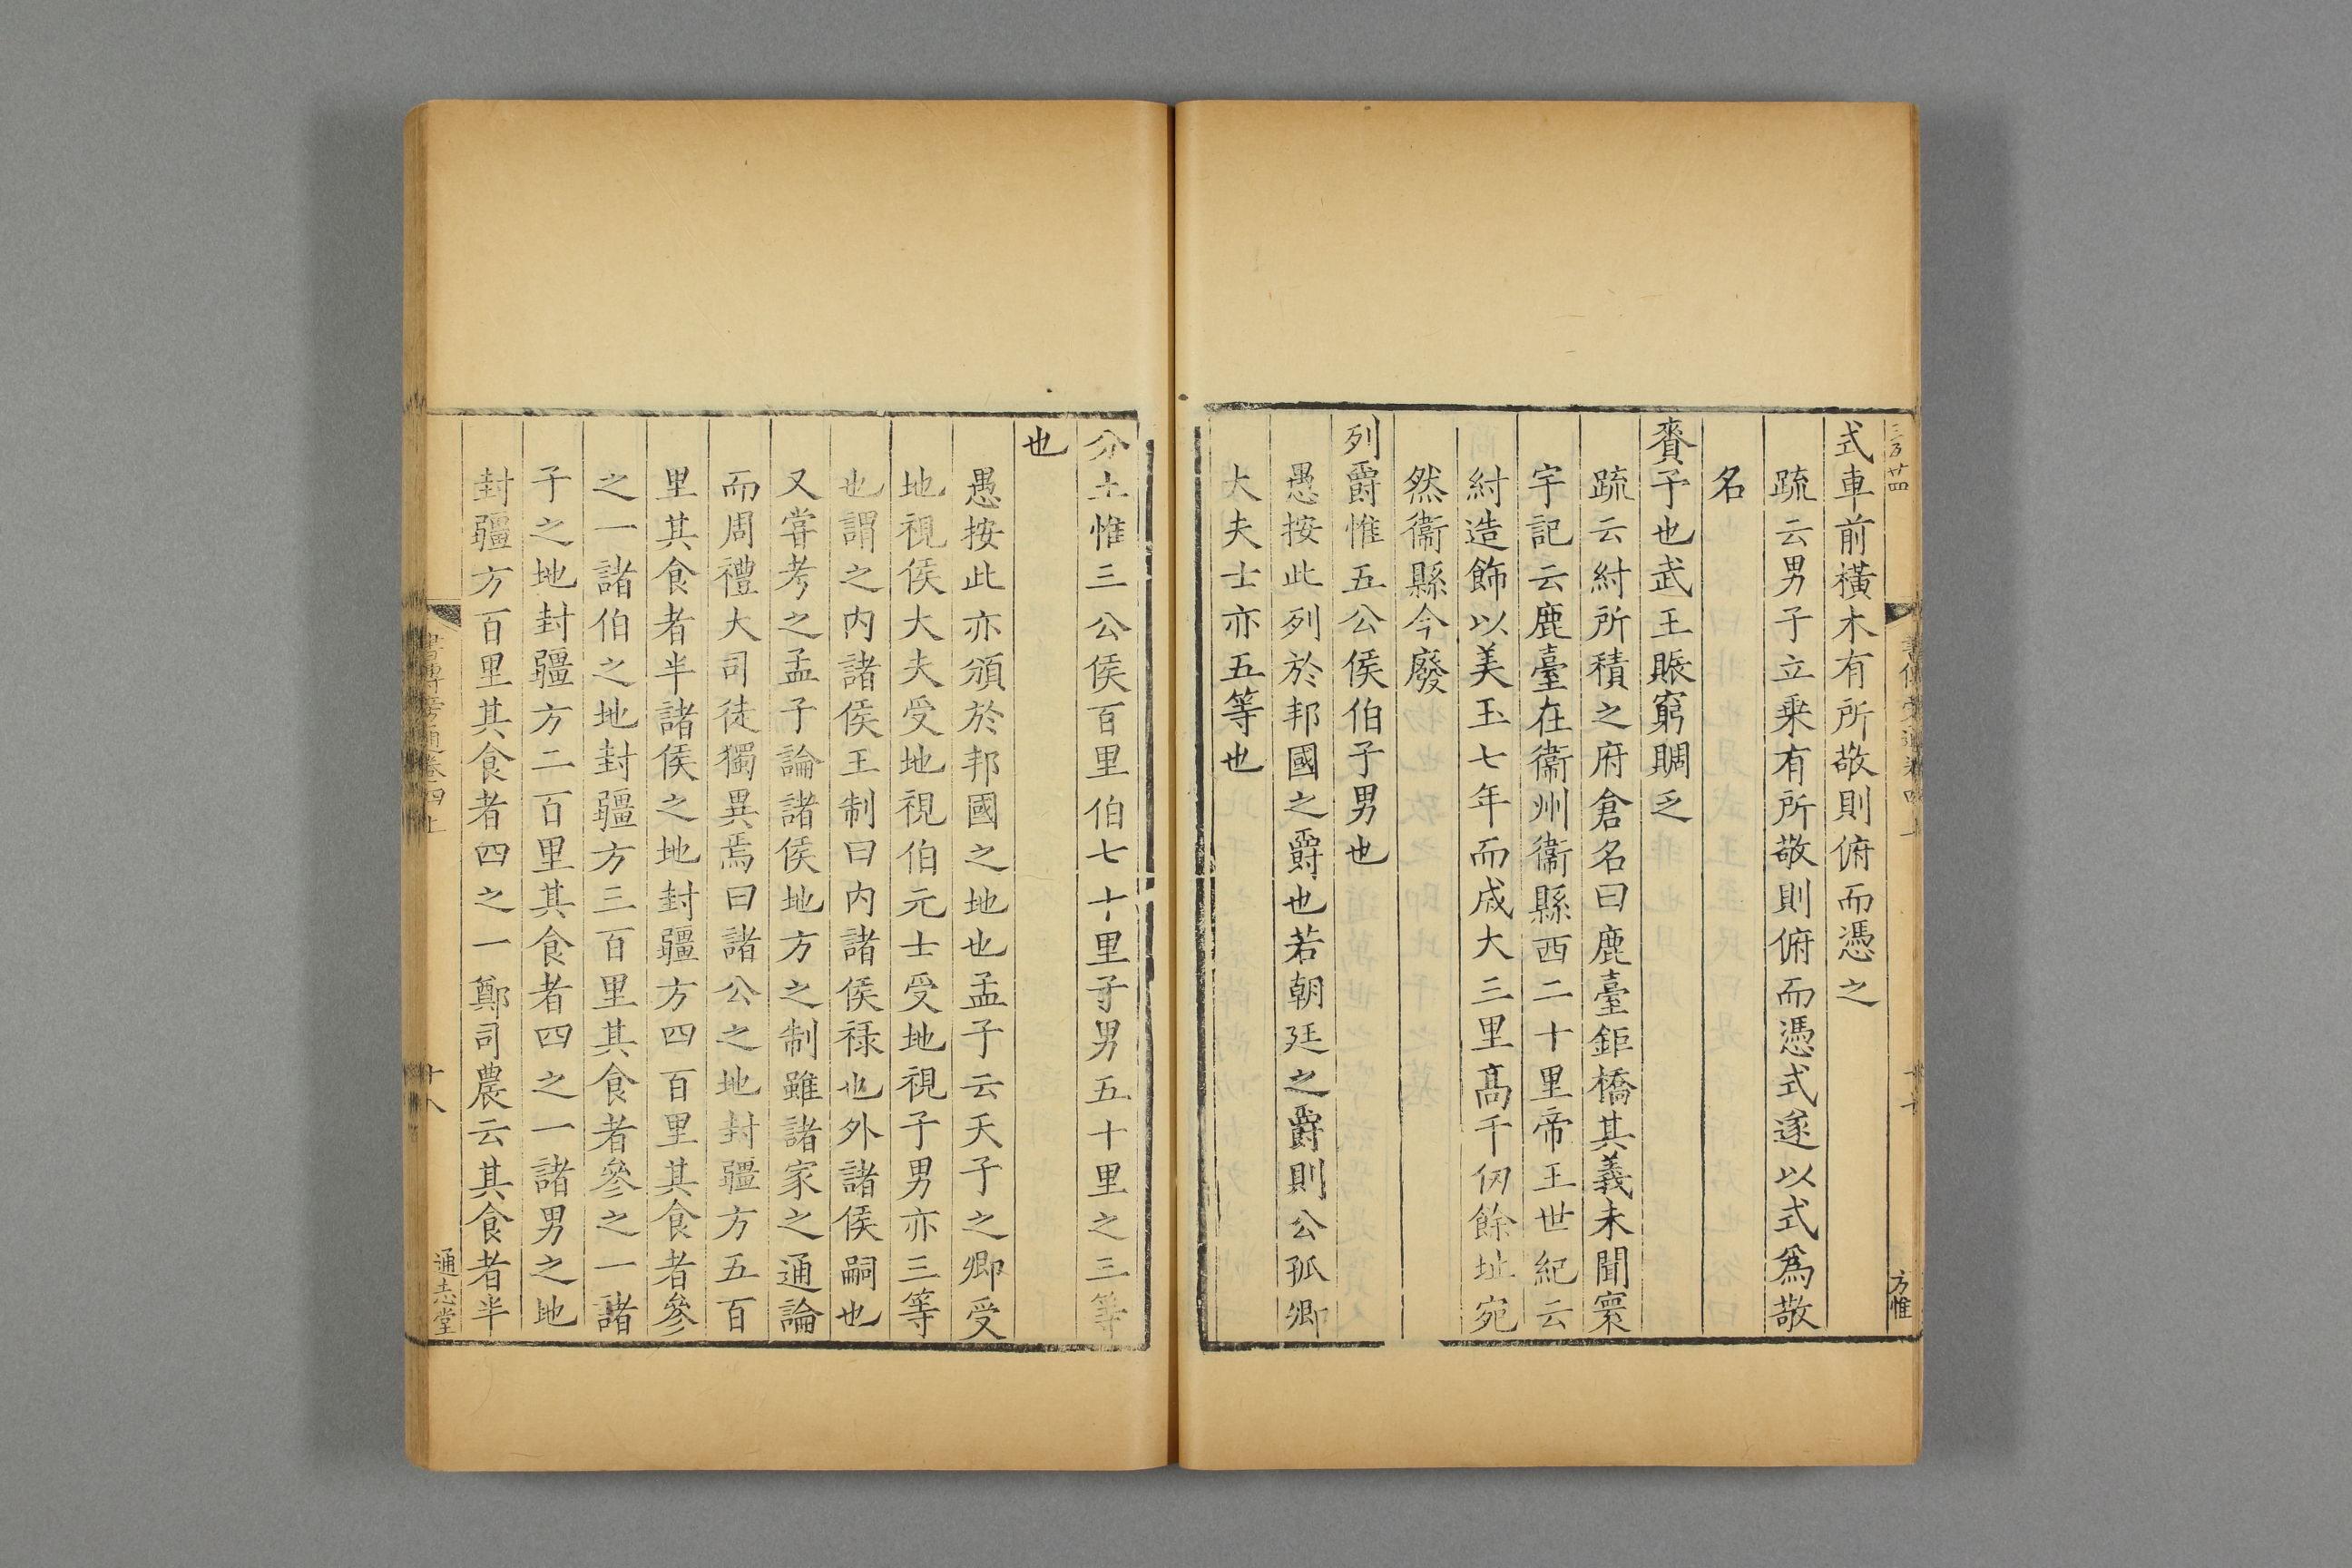 式車前橫木有所敬則俯而憑之
疏云男子立乗有所敬則俯而憑式遂以式爲敬
名
賚予也武王賑窮賙乏
疏云紂所積之府倉名曰鹿臺鉅橋其義未聞寰
宇記云鹿臺在衞州衞縣西二十里帝王世紀云
紂造飾以美玉七年而成大三里髙千仞餘址宛
然衞縣今廢
列爵惟五公侯伯子男也
愚按此列於邦國之爵也若朝廷之爵則公孤卿
大夫士亦五等也
方惟
分土惟三公侯百里伯七十里子男五十里之三等
也
愚按此亦頒於邦國之地也孟子云天子之卿受
地視侯大夫受地視伯元士受地視子男亦三等
也謂之内諸侯王制曰内諸侯禄也外諸侯嗣也
又嘗考之孟子論諸侯地方之制雖諸家之通論
而周禮大司徒獨異焉曰諸公之地封疆方五百
里其食者半諸侯之地封疆方四百里其食者參
之一諸伯之地封疆方三百里其食者參之一諸
子之地封疆方二百里其食者四之一諸男之地
封疆方百里其食者四之一鄭司農云其食者半
書傳旁通卷四上
十八
通志堂